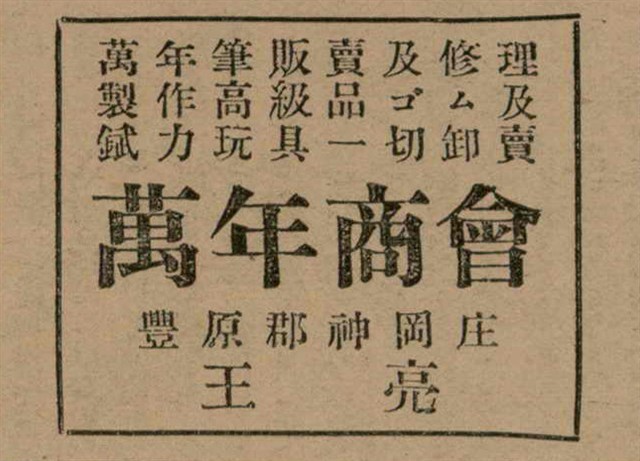 萬年筆販賣及修理
製作高級品ゴム及
錻力玩具一切卸賣
萬年商會
豐原郡神岡庄
王亮